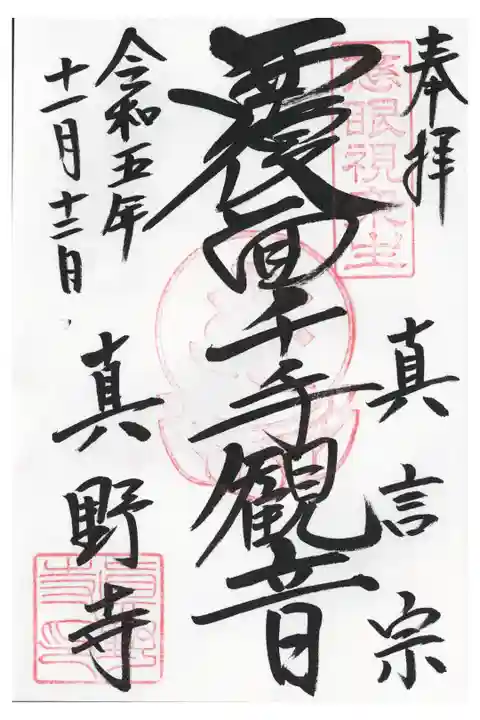 奉拝
真言宗
慈眼視衆生
覆面千手観音
真野寺
令和五年
十一月十二日